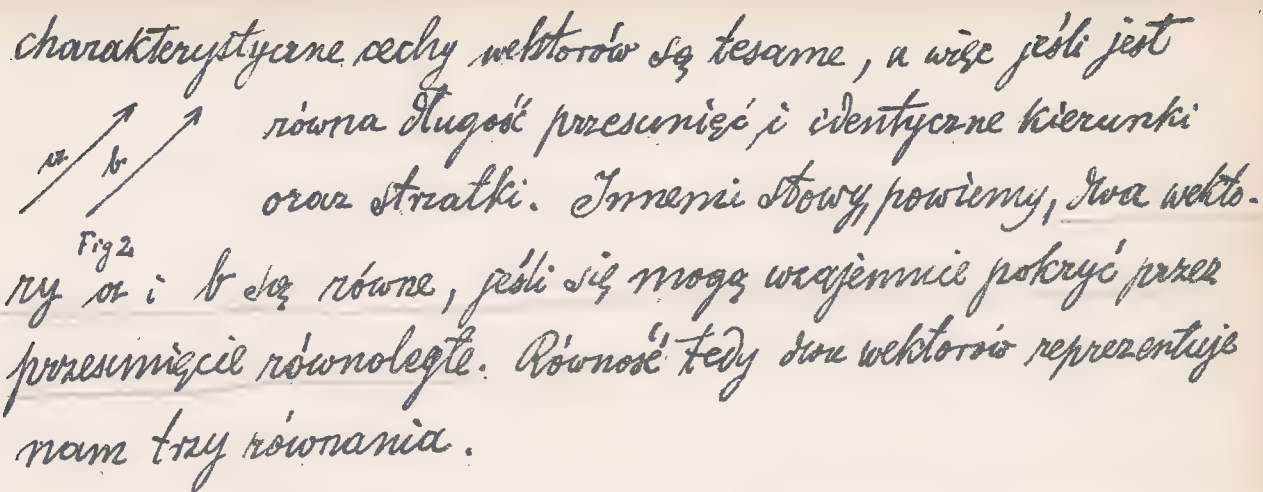 charakterystyczne cechy wektorów są tesame, a więc jeśli jest
równa długość przesunięć i identyczne kierunki
a b
oraz strzałki. Innemi słowy, powiemy, dwa wekto-
Fig 2
ry a i b są równe, jeśli się mogą wzajemnie pokryć przez
przesunięcie równoległe. Równość tedy dwu wektorów reprezentuje
nam trzy równania.